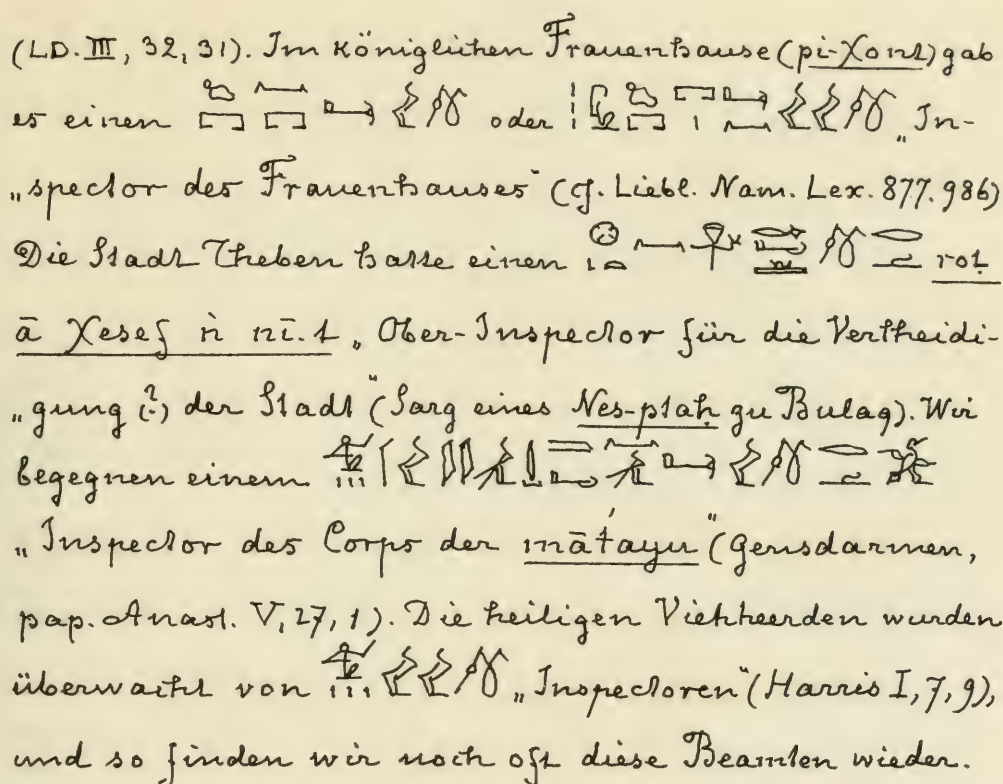 (LD. III, 32, 31). Im königlichen Frauenhause (pi-χont) gab
es einen oder „In-
„spector des Frauenhauses“ (cf. Liebl. Nam. Lex. 877. 986)
Die Stadt Theben hatte einen rot
ā χesef ǹ nī.t „Ober-Inspector für die Vertheidi-
„gung (?) der Stadt“ (Sarg eines Nes-ptaḥ zu Bulaq). Wir
begegnen einem
„Inspector des Corps der māt́ayu“ (Gensdarmen,
pap. Anast. V, 27, 1). Die heiligen Viehheerden wurden
überwacht von „Inspectoren“ (Harris I, 7, 9),
und so finden wir noch oft diese Beamten wieder.